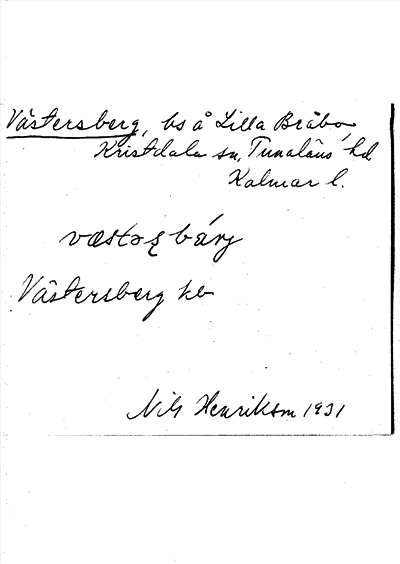 Västersberg, bs å Lilla Bråbo,
Kristdala sn, Tunaläns hd
Kalmar l.
Västersberg kb
Nils Henriksson 1931